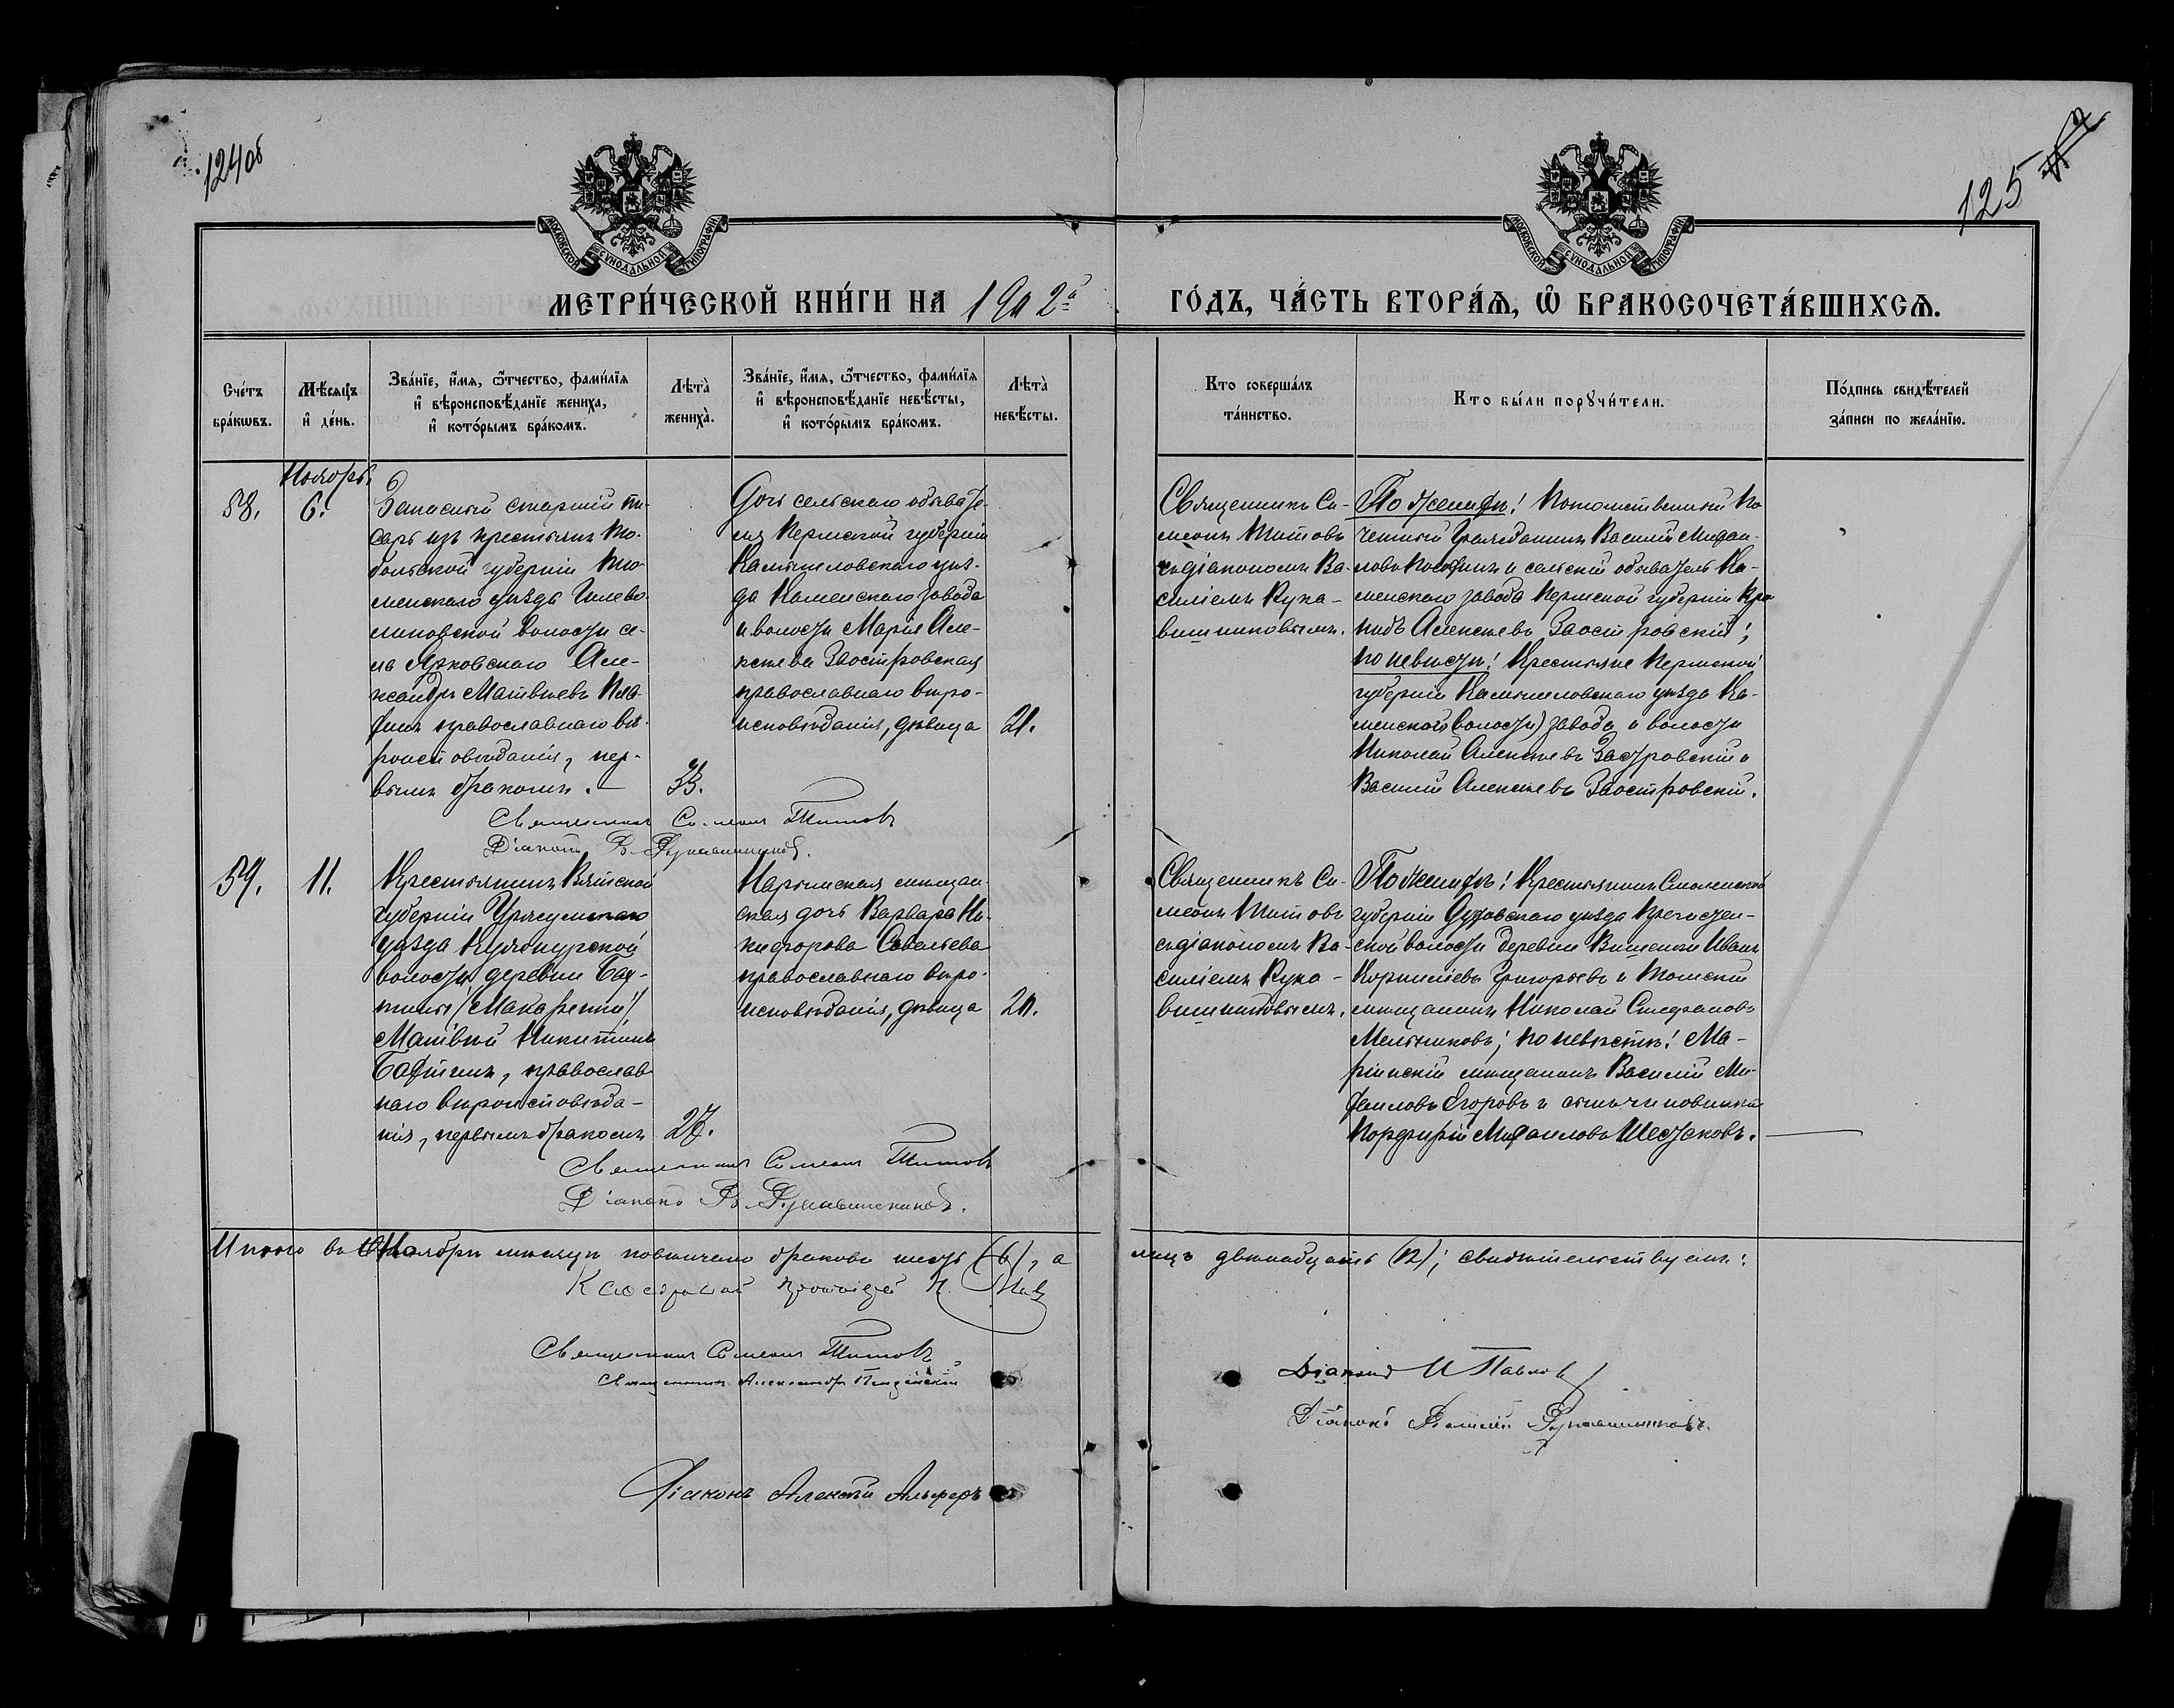 124об
125
МОСКОВСКОЙ СУНОДАЛЬНОЙ ТИПОГРАФІИ
МОСКОВСКОЙ СУНОДАЛЬНОЙ ТИПОГРАФІИ
МЕТРИ́ЧЕСКОЙ КНИ́ГИ НА 1902й ГО́ДЪ, ЧА́СТЬ ВТОРА́Ѧ, Ѡ҆ БРАКОСОЧЕТА́ВШИХСѦ.
Сче́тъ
бра́кѡвъ.
Мѣ́сяцъ
и҆ де́нь.
Зва́нїе, и҆́мѧ, ѻ҆́тчество, фами́лїѧ
и҆ вѣроисповѣ́данїе жениха̀,
и҆ кото́рымъ бра́комъ.
Лѣта̀
жениха̀.
Зва́нїе, и҆́мѧ, ѻ҆́тчество, фами́лїѧ
и҆ вѣроисповѣ́данїе невѣ́сты,
и҆ кото́рымъ бра́комъ.
Лѣта̀
невѣ́сты.
Кто соверша́лъ
та́инство.
Кто бы́ли порꙋчи́тели.
По́дпись свидѣ́телей
за́писи по жела́нїю.
Ноябрь.
58.
6.
Запасный старшій пи-
сарь изъ крестьянъ То-
больской губерніи Тю-
менскаго уѣзда
волости се-
ла Ярковскаго Але-
ксандръ Матвѣевъ
православнаго вѣ-
роисповѣданія, пер-
вымъ бракомъ.
33.
Дочь сельскаго обывате-
ля Пермской губерніи
Камышловскаго уѣз-
да Каменскаго завода
и волости Марія Але-
ксѣева Заостровская
православнаго вѣро-
исповѣданія, дѣвица
21.
Священникъ Си-
меонъ Титовъ
съ діакономъ Ва-
силіемъ Рука-
вишниковымъ.
По женихѣ: Потомственный По-
четный Гражданинъ Василій Михаи-
ловъ и сельскій обыватель Ка-
менскаго завода Пермской губерніи Кро-
нидъ Алексѣевъ Заостровскій;
по невѣстѣ: Крестьяне Пермской
губерніи Камышловскаго уѣзда Ка-
менской (волости) завода и волости
Николай Алексѣевъ Заостровскій и
Василій Алексѣевъ Заостровскій.
Священникъ Симеонъ Титовъ
Діаконъ В. Рукавишниковъ.
59.
11.
Крестьянинъ Вятской
губерніи Уржумскаго
уѣзда
волости деревни
(Макарепки)
Матвѣй Никитинъ
православ-
наго вѣроисповѣда-
нія, первымъ бракомъ
27.
Нарымская мѣщан-
ская дочь Варвара Ни-
кифорова Савельева
православнаго вѣро-
исповѣданія, дѣвица
20.
Священникъ Си-
меонъ Титовъ
съ діакономъ Ва-
силіемъ Рука-
вишниковымъ.
По женихѣ: Крестьянинъ Смоленской
губерніи Духовскаго уѣзда Пречистен-
ской волости деревни Иванъ
Корниліевъ Григорьевъ и Томскій
мѣщанинъ Николай Стефановъ
Мельниковъ; по невѣстѣ: Ма-
ріинскій мѣщанинъ Василій Ми-
хаиловъ Егоровъ и
Порфирій Михаиловъ Шестаковъ.
Священникъ Симеонъ Титовъ
Діаконъ В. Рукавишниковъ.
Итого въ Ноябрѣ мѣсяцѣ повѣнчано браковъ шесть (6), а лицъ двѣнадцать (12); свидѣтельствуемъ:
Каѳедральный протоіерей
Священникъ Симеонъ Титовъ
Священникъ Александръ
Діаконъ И Павловъ
Діаконъ Василій Рукавишниковъ.
Діаконъ Алексѣй